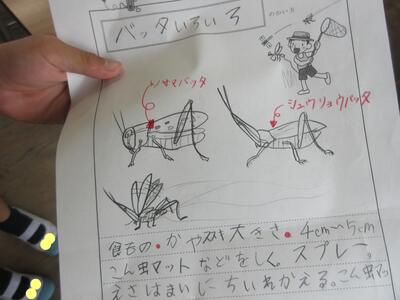 バッタいろいろ
のかい方
トノサマバッタ
ショウリョウバッタ
食もの・かや 大きさ・4cm〜5cm
こん虫マットなどをしく。スプレー。
えさはまいにちいれかえる。こん虫